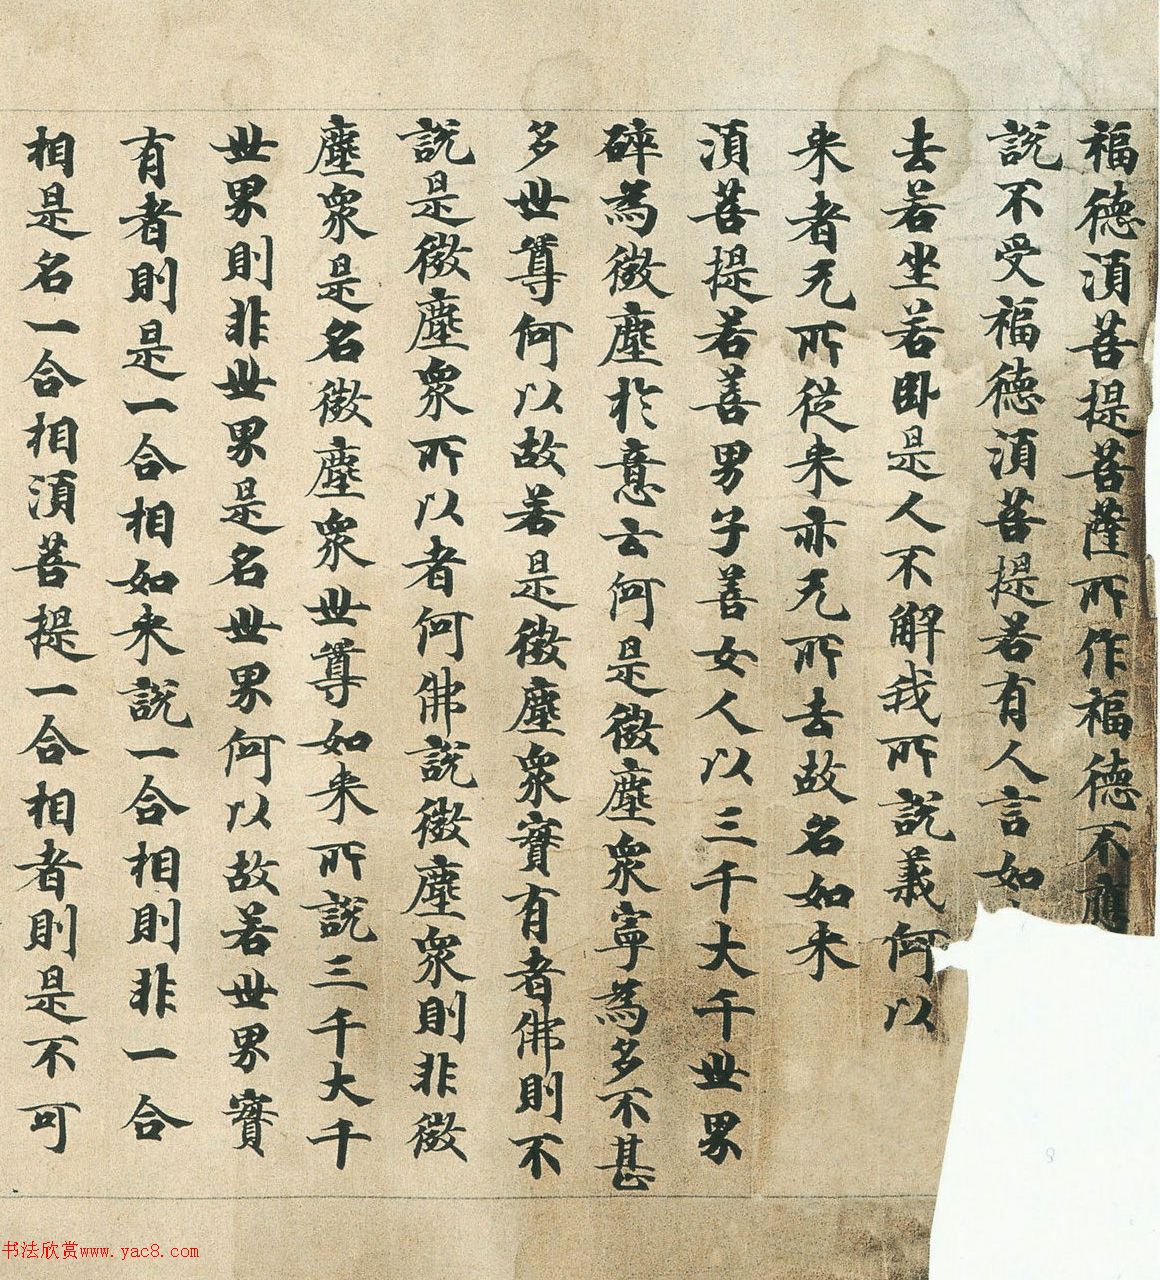 福德湏菩提菩薩所作福德不應
說不受福德湏菩提若有人言如
去若坐若卧是人不解我所說義何以
来者无所従来亦无所去故名如来
湏菩提若善男子善女人以三千大千世界
碎為微塵於意云何是微塵衆寧為多不甚
多世尊何以故若是微塵衆實有者佛則不
說是微塵衆所以者何佛說微塵衆則非微
塵衆是名微塵衆世尊如来所說三千大千
世界則非世界是名世界何以故若世界實
有者則是一合相如来說一合相則非一合
相是名一合相湏菩提一合相者則是不可
书法欣赏www.yac8.com